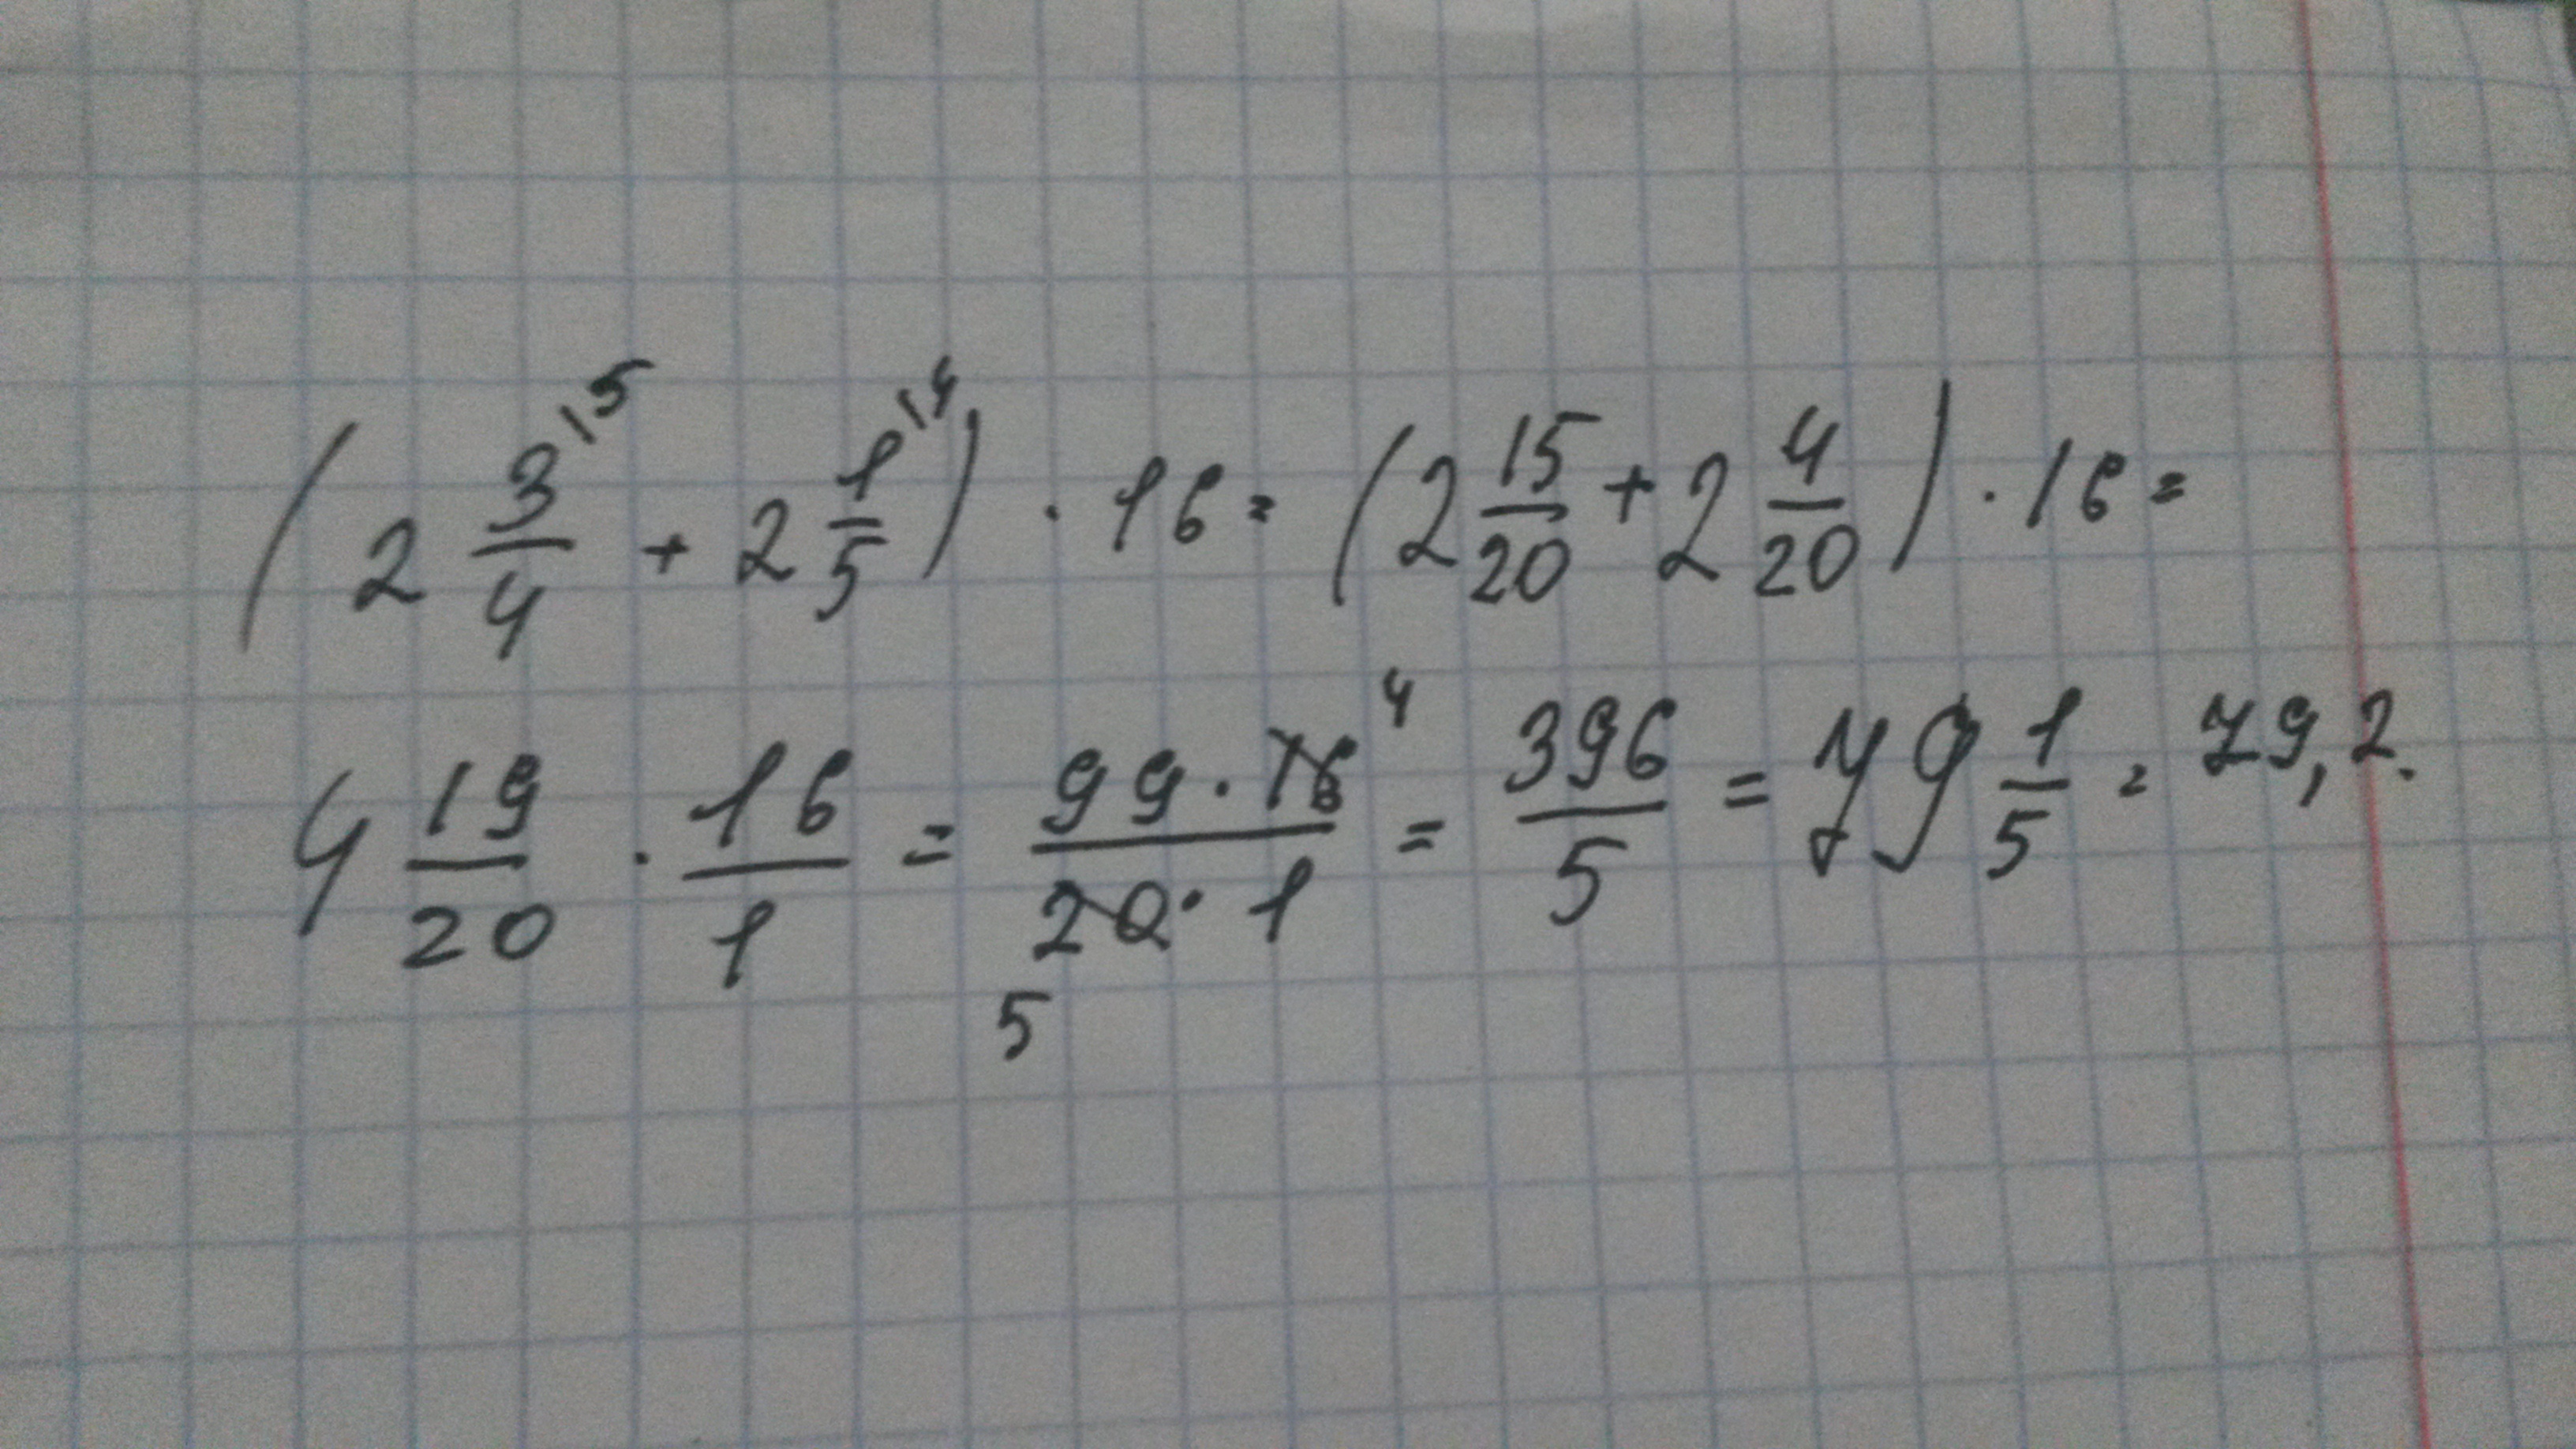 (2 3/4 \5 + 2 1/5 \4) · 16 = (2 15/20 + 2 4/20) · 16 =
4 19/20 · 16/1 = 99 · 16 4 / 20 · 1 5 = 396/5 = 79 1/5 = 79,2.